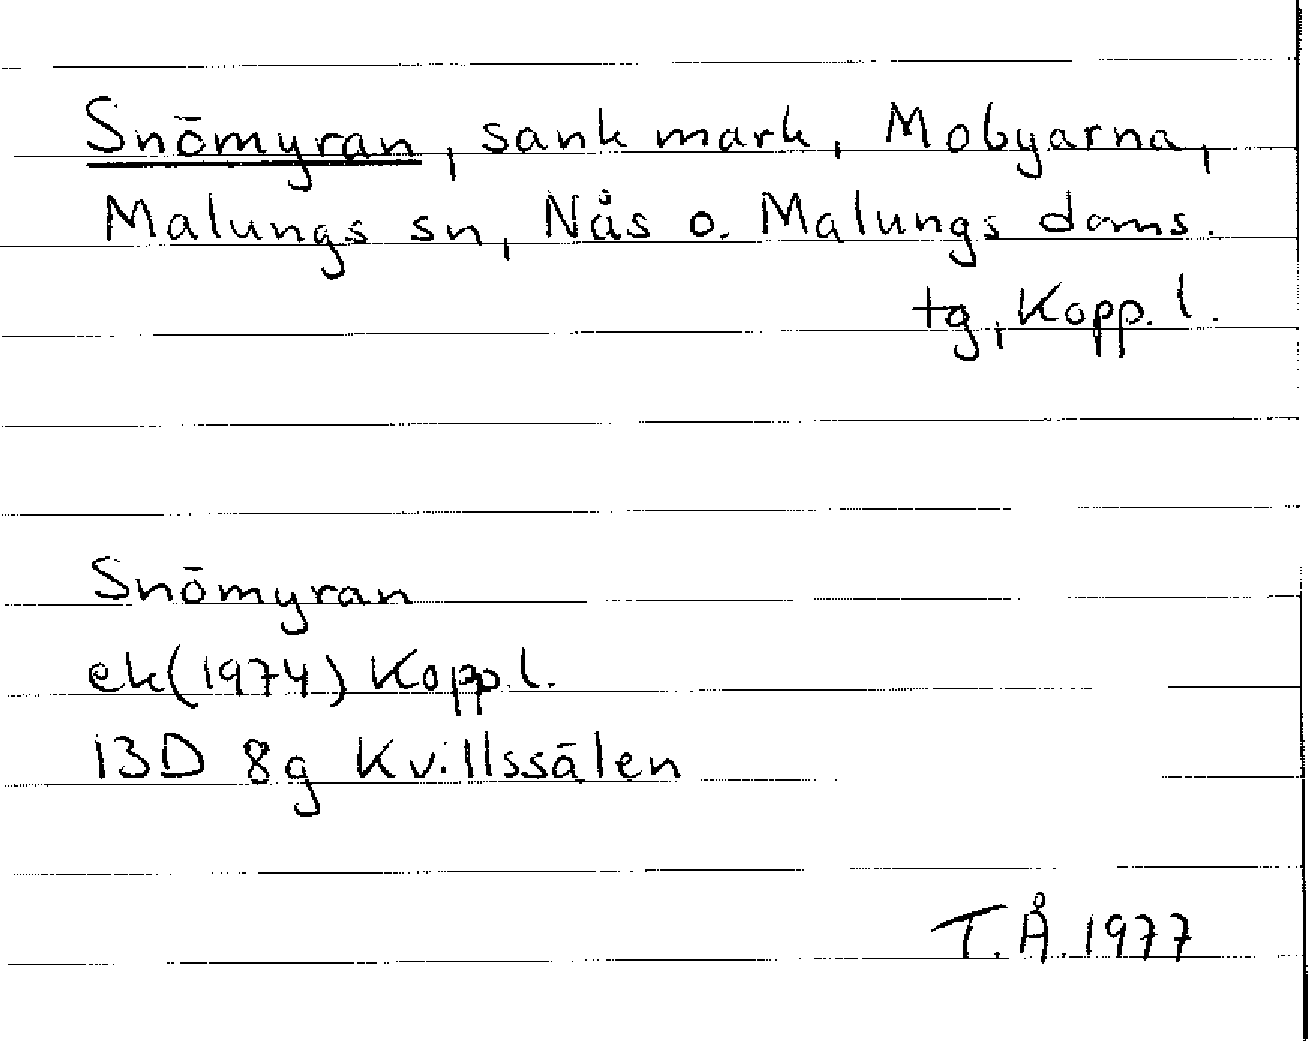 Snömyran, sank mark, Mobyarna,
Malungs sn, Nås o. Malungs doms.
tg, Kopp. l.
Snömyran
ek(1974) Kopp.l.
13D 8g Kvillssälen
T.Å.1977